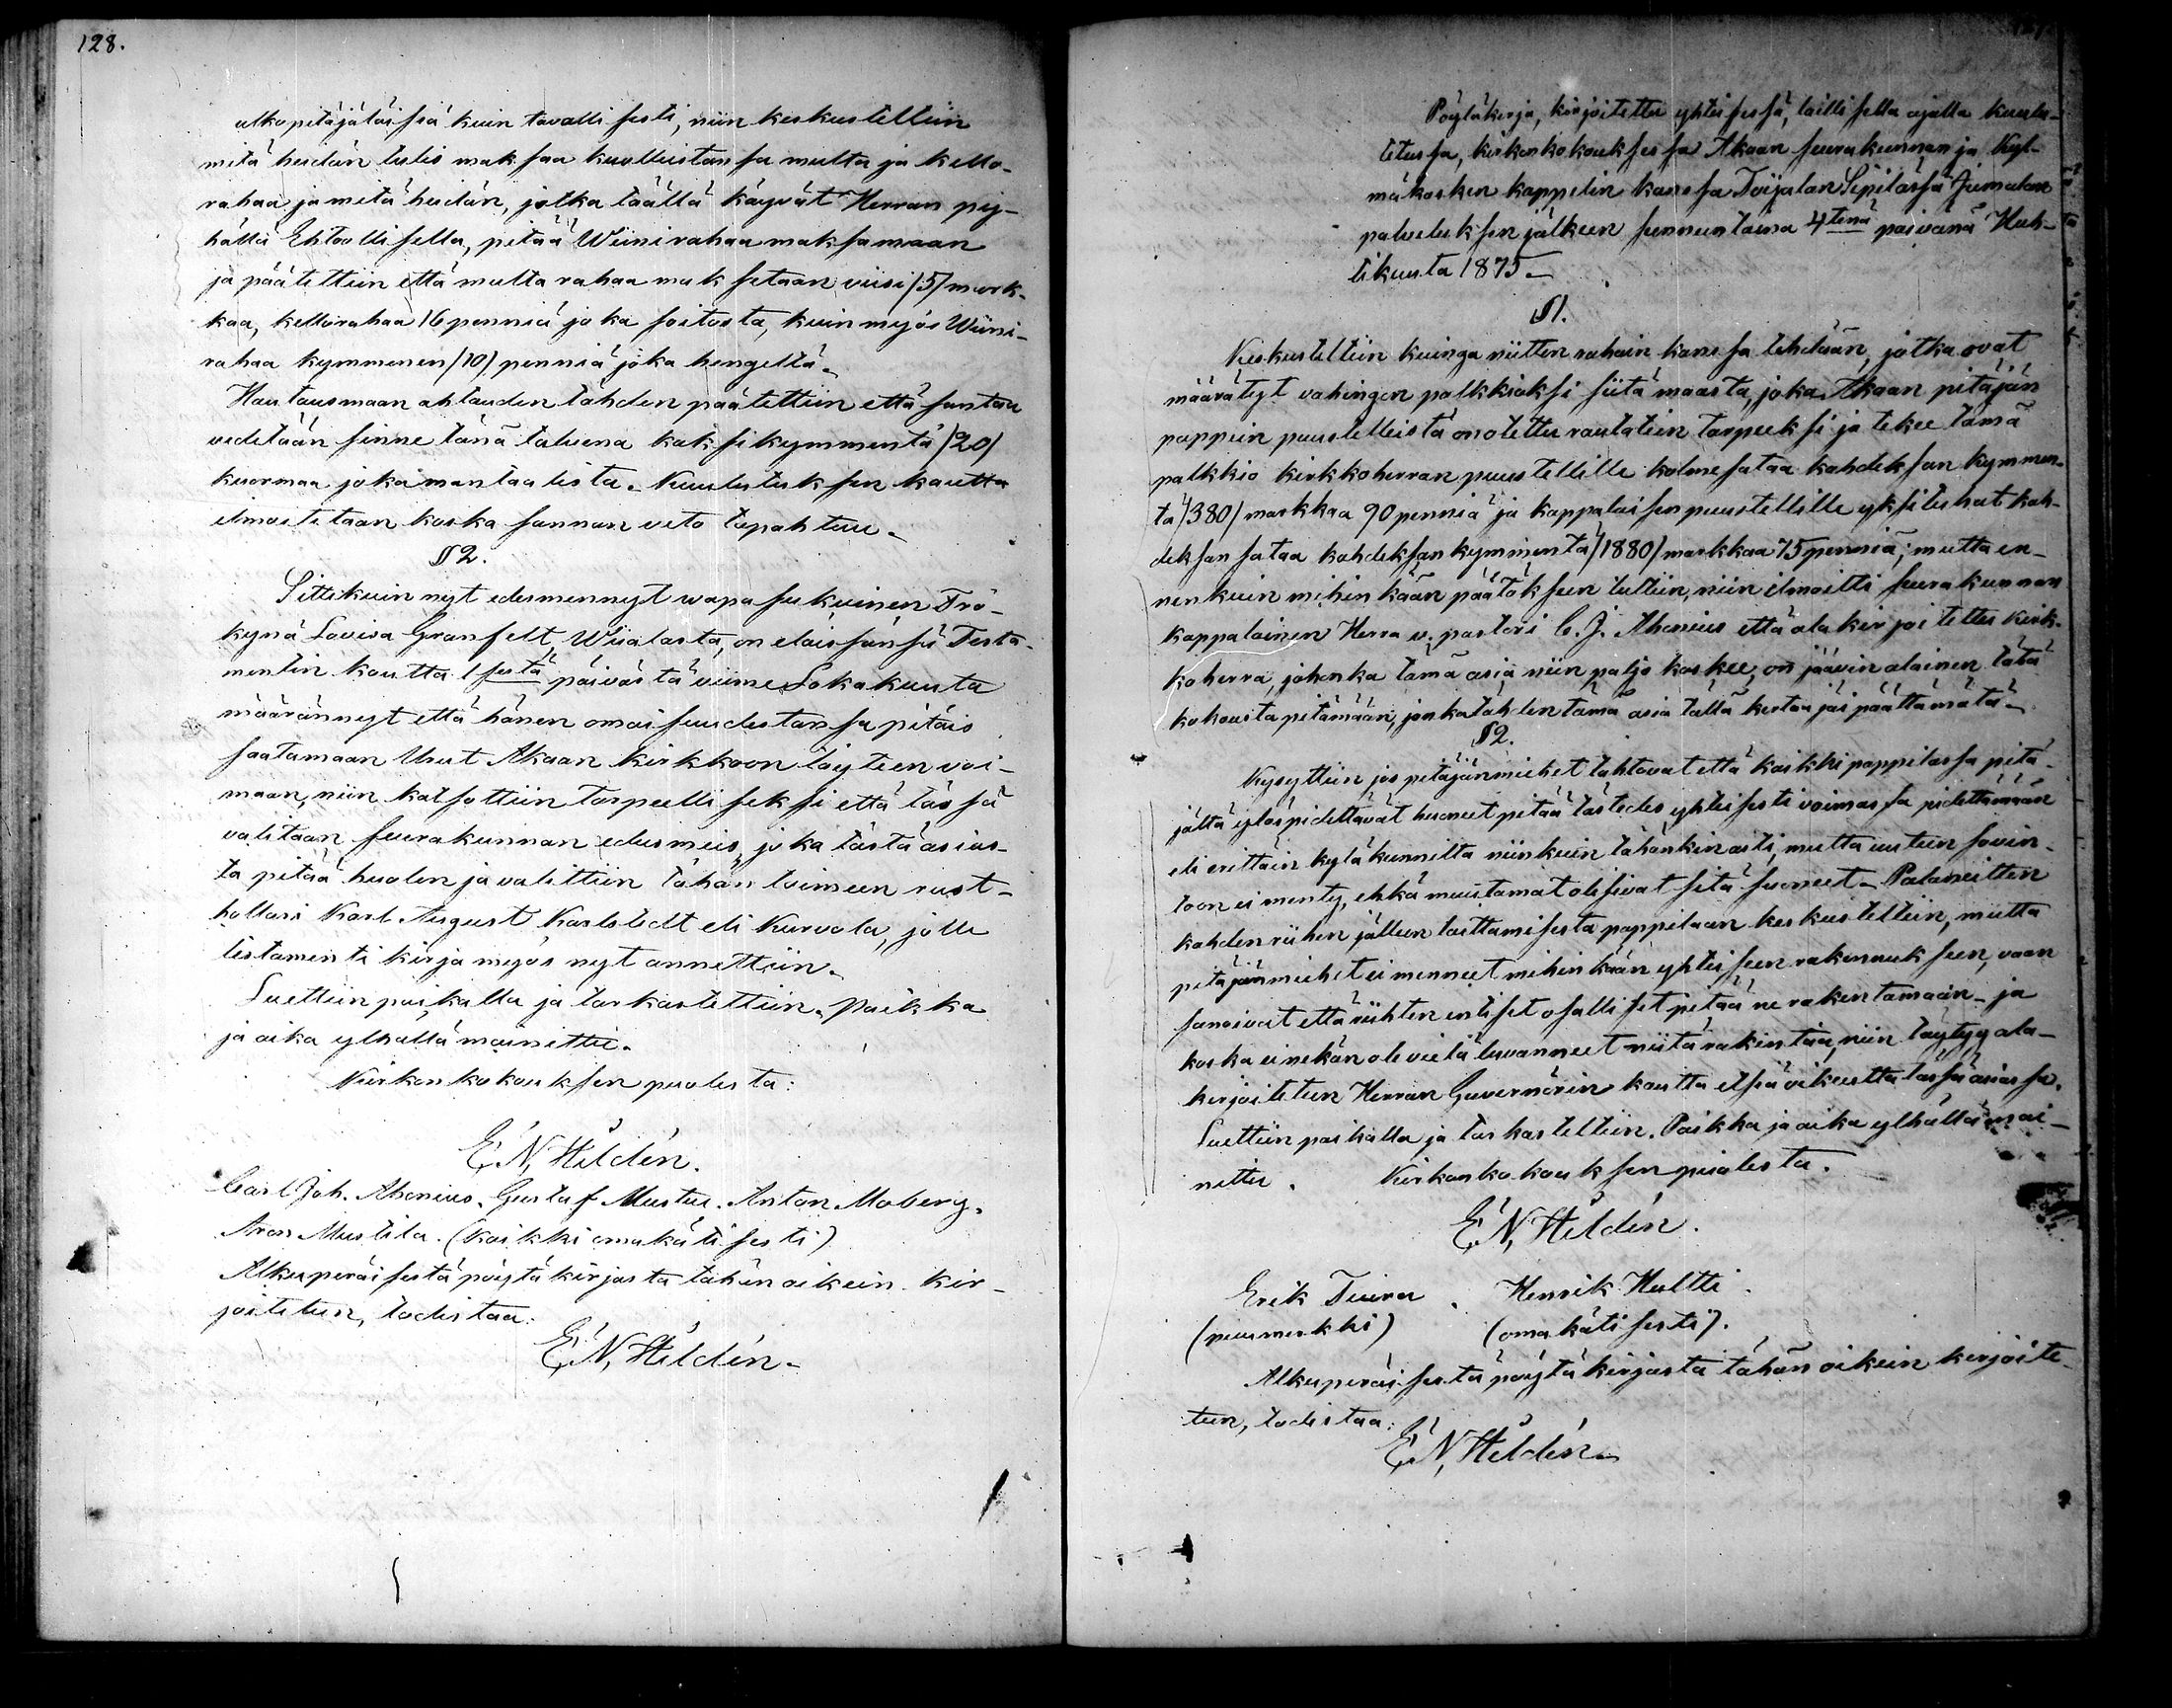 128.
ulkopitäjäläisiä kuin tavallisesti, niin keskusteltiin
mitä heidän tulis maksaa kuolleistansa multa ja kello-
rahaa ja mitä heidän, jotka täällä käyvät Herran py-
hällä Ehtoollisella, pitää Wiinirahaa maksamaan
ja päätettiin että multa rahaa maksetaan viisi /5/ mark-
kaa, kellorahaa 16 penniä joka soitosta, kuin myös Wiini-
rahaa kymmenen /10/ penniä joka hengeltä.
Hautausmaan ahtauden tähden päätettiin että santaa
vedetään sinne tänä talvena kaksikymmentä /20/
kuormaa joka mantaalista. Kuulutuksen kautta
ilmoitetaan koska sannan veto tapahtuu.
§ 2.
Sittekuin nyt edesmennyt wapasukuinen Frö-
kynä Lovisa Granfelt, Wiialasta, on eläissänsä Testa-
mentin kautta 1 sestä päivästä viime Lokakuuta
määrännyt että hänen omaisuudestansa pitäis
saatamaan Urut Akaan kirkkoon täyteen voi-
maan, niin katsottiin tarpeelliseksi että tässä
valitaan seurakunnan edusmies, joka tästä asias-
ta pitää huolen ja valittiin tähän toimeen rust-
hollari Karl August Karlstedt eli Kurvola, jolle
testamenti kirja myös nyt annettiin.
Luettiin paikalla ja tarkastettiin. Paikka
ja aika ylhällä mainittu.
Kirkonkokouksen puolesta:
E. N. Hildén.
Carl Joh. Ahonius. Gustaf Mustue. Anton Moberg.
Aron Mustila. (kaikki omakätisesti)
Alkuperäisestä pöytäkirjasta tähän oikein kir-
joitetuun, todistaa:
E. N. Hildén.
Pöytäkirja, kirjoitettu yhteisessä, laillisella ajalla kuulu-
tetussa, kirkonkokouksessa Akaan seurakunnan ja Kyl-
mäkosken kappelin kanssa Toijalan Sepilässä Jumalan
palveluksen jälkeen sunnuntaina 4tenä päivänä Huh-
tikuuta 1875.
§ 1.
Keskusteltiin kuinga niitten rahain kanssa tehdään, jotka ovat
määrätyt vahingon palkkioksi siitä maasta, joka Akaan pitäjän
pappein puustelleista on otettu rautatein tarpeeksi ja tekee tämä
palkkio kirkkoherran puustellille kolmesataa kahdeksan kymmen-
tä /380/ markkaa 90 penniä ja kappalaisen puustellille yksituhat kah-
deksan sataa kahdeksankymmentä /1880/ markkaa 75 penniä; mutta en-
nenkuin mihinkään päätökseen tultiin, niin ilmoitti seurakunnan
kappalainen Herra v. pastori C. J. Ahonius että ala kirjoitettu kirk-
koherra, johonka tämä asia niin paljo koskee, on jäävin alainen tätä
kokousta pitämään, jonka tähden tämä asia tällä kertaa jäi päättämätä.
§ 2.
Kysyttiin jos pitäjänmiehet tahtovat että kaikki pappilassa pitä-
jältä ylöspidettävät huoneet pitää tästedes yhteisesti voimassa pidettämään
eli erittäin kyläkunnilta niinkuin tähänkin asti, mutta uuteen sovin-
toon ei menty, ehkä muutamat olisivat sitä suoneet. Palaneitten
kahden riihen jälleen laittamisesta pappilaan keskusteltiin, mutta
pitäjänmiehet ei menneet mihinkään yhteiseen rakennukseen, vaan
sanoivat että riihten entiset osalliset pitää ne rakentamaan. ja
koska ei nekän ole vielä luvanneet niitä rakentaa, niin täytyy ala-
kirjoitetun Herran Guvernörin kautta etsiä oikeutta tässä asiassa.
Luettiin paikalla ja tarkasteltiin. Paikka ja aika ylhällä mai-
nittu. Kirkonkokouksen puolesta.
E. N. Hildén.
Erik Tuira. Henrik Hultti.
(puumerkki) (omakätisesti).
Alkuperäisestä pöytäkirjasta tähän oikein kirjoite-
tuun, todistaa:
E. N. Hildén.